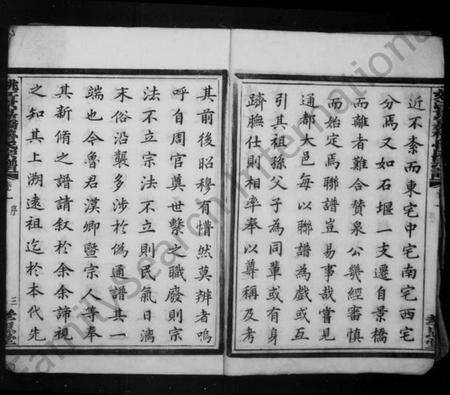 近不紊而東宅中宅南宅西宅
分焉又如石堰一支遷自景橋
而離者難合贊泉公幾經審慎
而始定焉聯譜豈易事哉嘗見
通都大邑每以聯譜為戲或互
引其祖孫父子為同輩或有身
躋膴仕則相率奉以尊稱及考
其前後昭穆有懵然莫辨者嗚
呼自周官奠世繫之職廢則宗
法不立宗法不立則民氣日漓
末俗沿襲多涉於偽通譜其一
端也今魯君漢卿暨宗人等奉
其新脩之譜請敘於余余諦視
之知其上溯遠祖迄於本代先
卷一 序
三
FamilySearch International